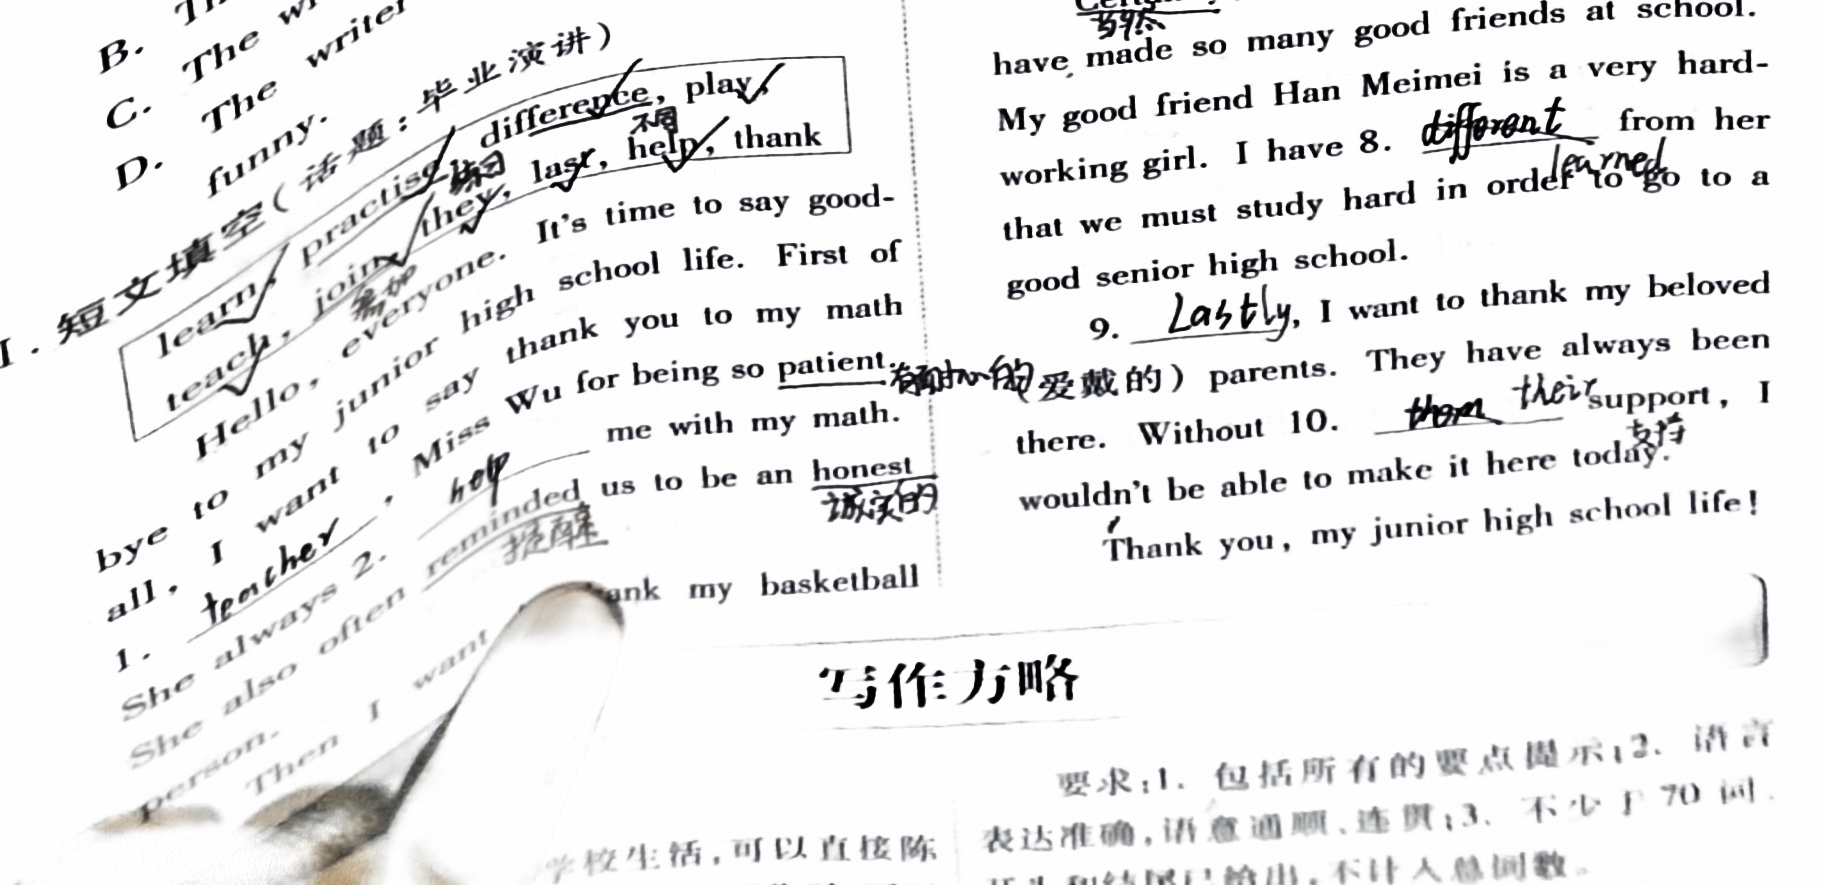 B. The w
C. The writer
D. The
funny.
I. 短文填空(话题:毕业演讲)
learn, practise, difference, play,
练习 不同
teach, join, they, last, help, thank
参加
Hello, everyone. It's time to say good-
bye to my junior high school life. First of
all, I want to say thank you to my math
1. teacher, Miss Wu for being so patient.
有耐心的
She always 2. help me with my math.
She also often reminded us to be an honest
提醒 诚实的
person.
Then I want ank my basketball
当然
have made so many good friends at school.
My good friend Han Meimei is a very hard-
working girl. I have 8. different from her
learned
that we must study hard in order to go to a
good senior high school.
9. Lastly, I want to thank my beloved
(爱戴的) parents. They have always been
there. Without 10. them their support, I
支持
wouldn't be able to make it here today.
Thank you, my junior high school life!
写作方略
学校生活,可以直接陈
要求:1. 包括所有的要点提示;2. 语言
表达准确,语意通顺、连贯;3. 不少于 70 词.
开头和结尾已给出,不计入总词数。